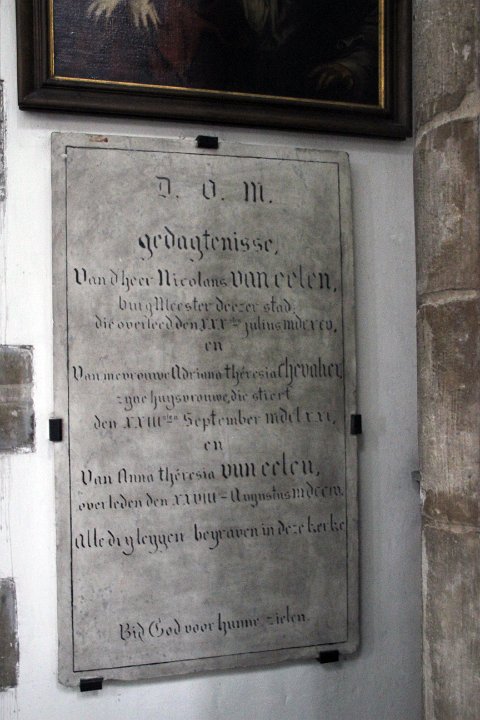 D. O. M.
gedagtenisse,
Van d'heer Nicolaus van eelen,
burgMeester deezer stad,
die overleed den XXXsten julius MDCXCV,
en
Van mevrouwe Adriana théresia chevalier,
zyne huysvrouwe, die stierf
den XXIIIsten September MDCLXXI,
en
van Anna théresia van eelen,
overleden den XXVIIIsten Augustus MDCCIV.
Alle dry leggen begraven in deze kerke
Bid God voor hunne zielen.